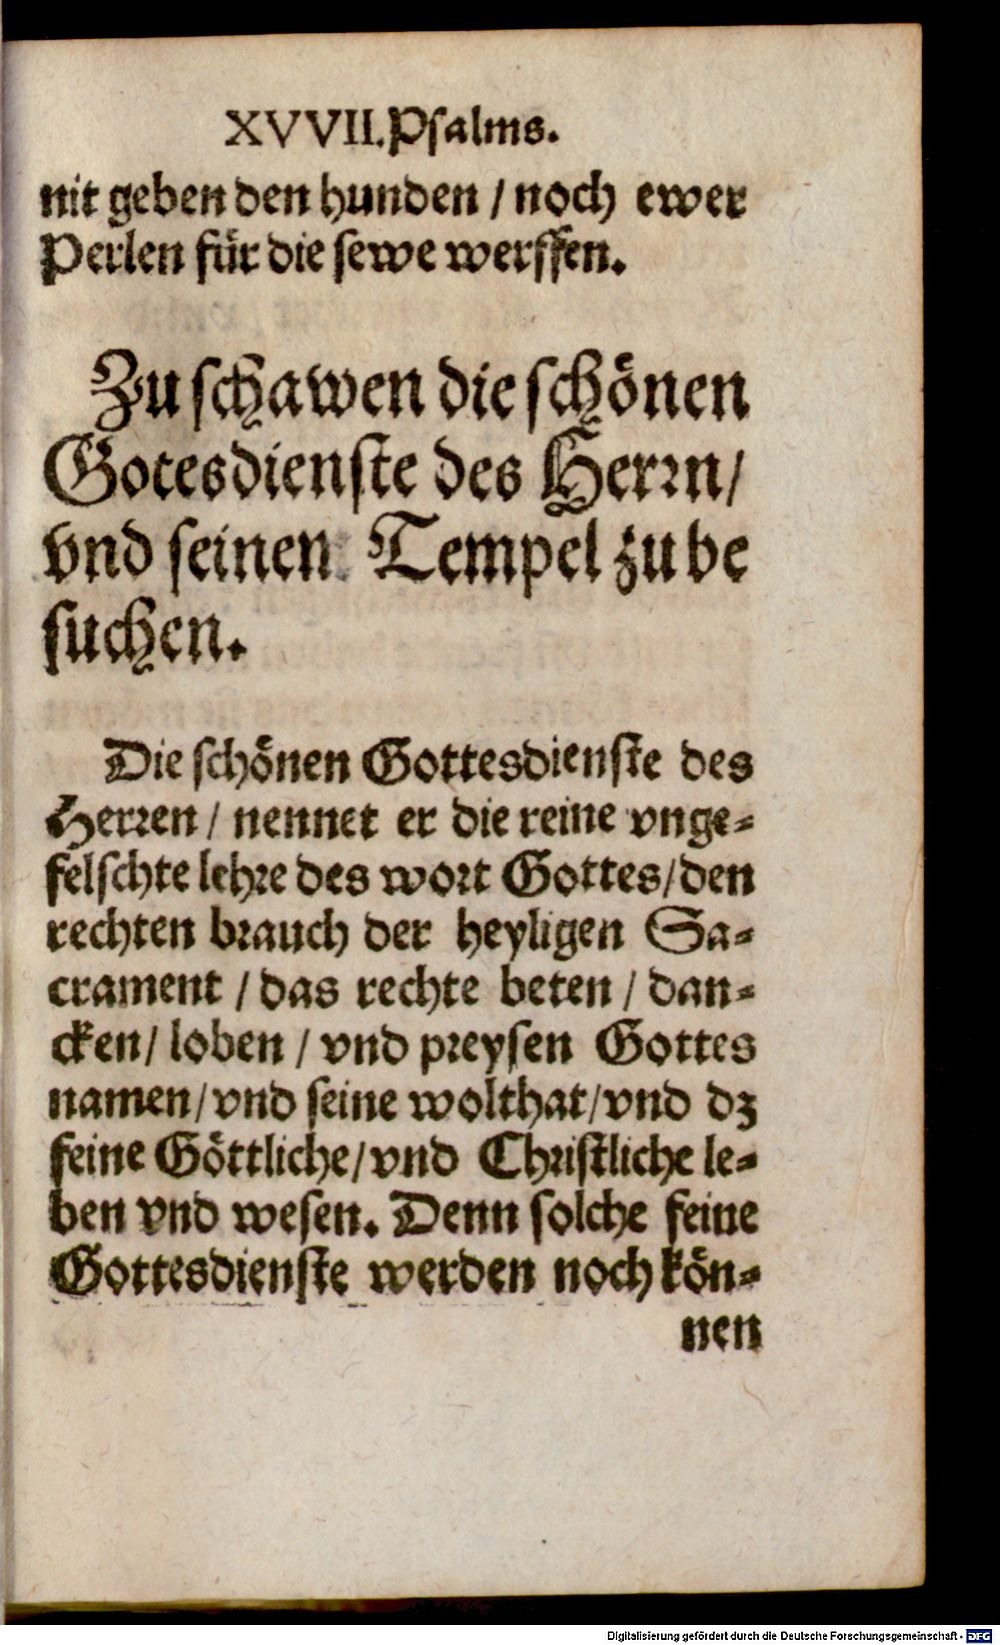 XVVII. Psalms.
nit geben den hunden / noch ewer
Perlen für die sewe werffen.
Zu schawen die schönen
Gotesdienste des Herrn/
vnd seinen Tempel zu be
suchen.
Die schönen Gottesdienste des
Herren / nennet er die reine vnge-
felschte lehre des wort Gottes/den
rechten brauch der heyligen Sa-
crament / das rechte beten / dan-
cken/ loben / vnd preysen Gottes
namen/vnd seine wolthat/vnd dz
feine Göttliche/vnd Christliche le-
ben vnd wesen. Denn solche feine
Gottesdienste werden noch kön-
nen
Digitalisierung gefördert durch die Deutsche Forschungsgemeinschaft - DFG